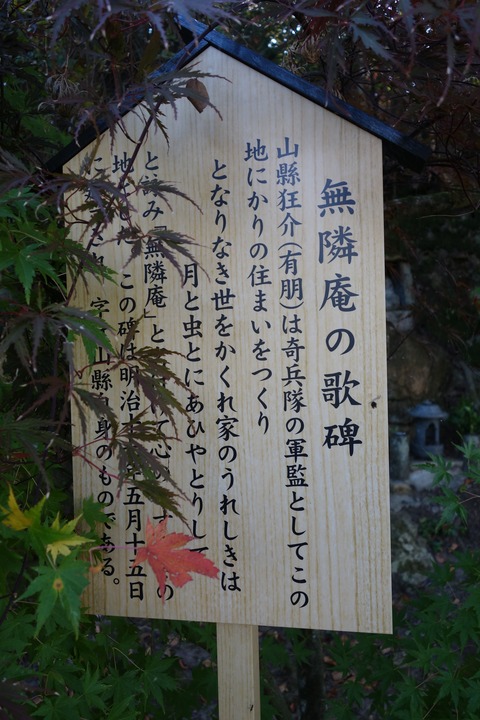 無隣庵の歌碑
山縣狂介(有朋)は奇兵隊の軍監としてこの
地にかりの住まいをつくり
となりなき世をかくれ家のうれしきは
月と虫とにあひやどりして
と詠み「無隣庵」と て心の の
地とした この碑は明治 年五月十五日
字 山縣自身のものである。